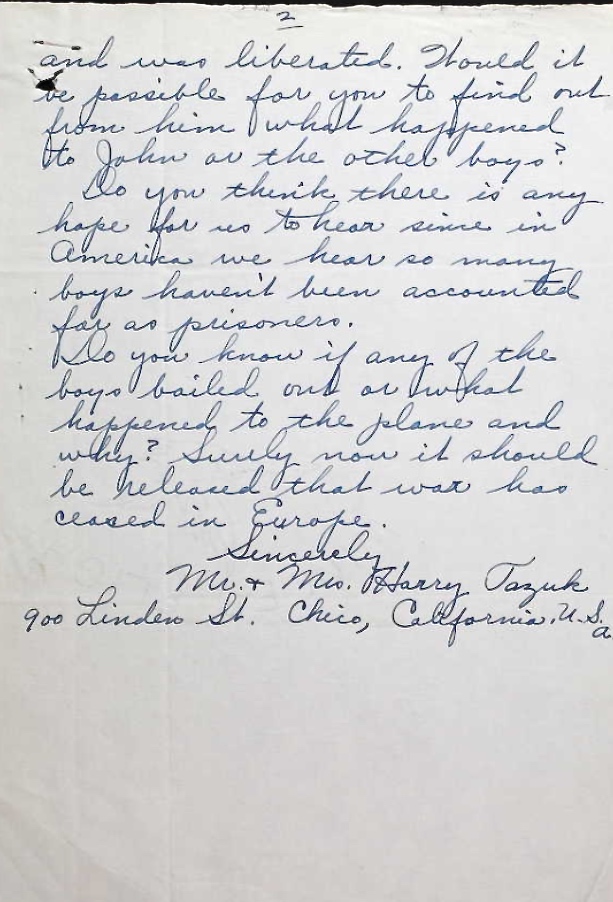 2
and was liberated. Would it
be possible for you to find out
from him what happened
to John or the other boys?
Do you think there is any
hope for us to hear since in
America we hear so many
boys haven't been accounted
for as prisoners.
Do you know if any of the
boys bailed out or what
happened to the plane and
why? Surely now it should
be released that war has
ceased in Europe.
Sincerely
Mr. & Mrs. Harry Tazuk
900 Linden St. Chico, California. U.S.
a